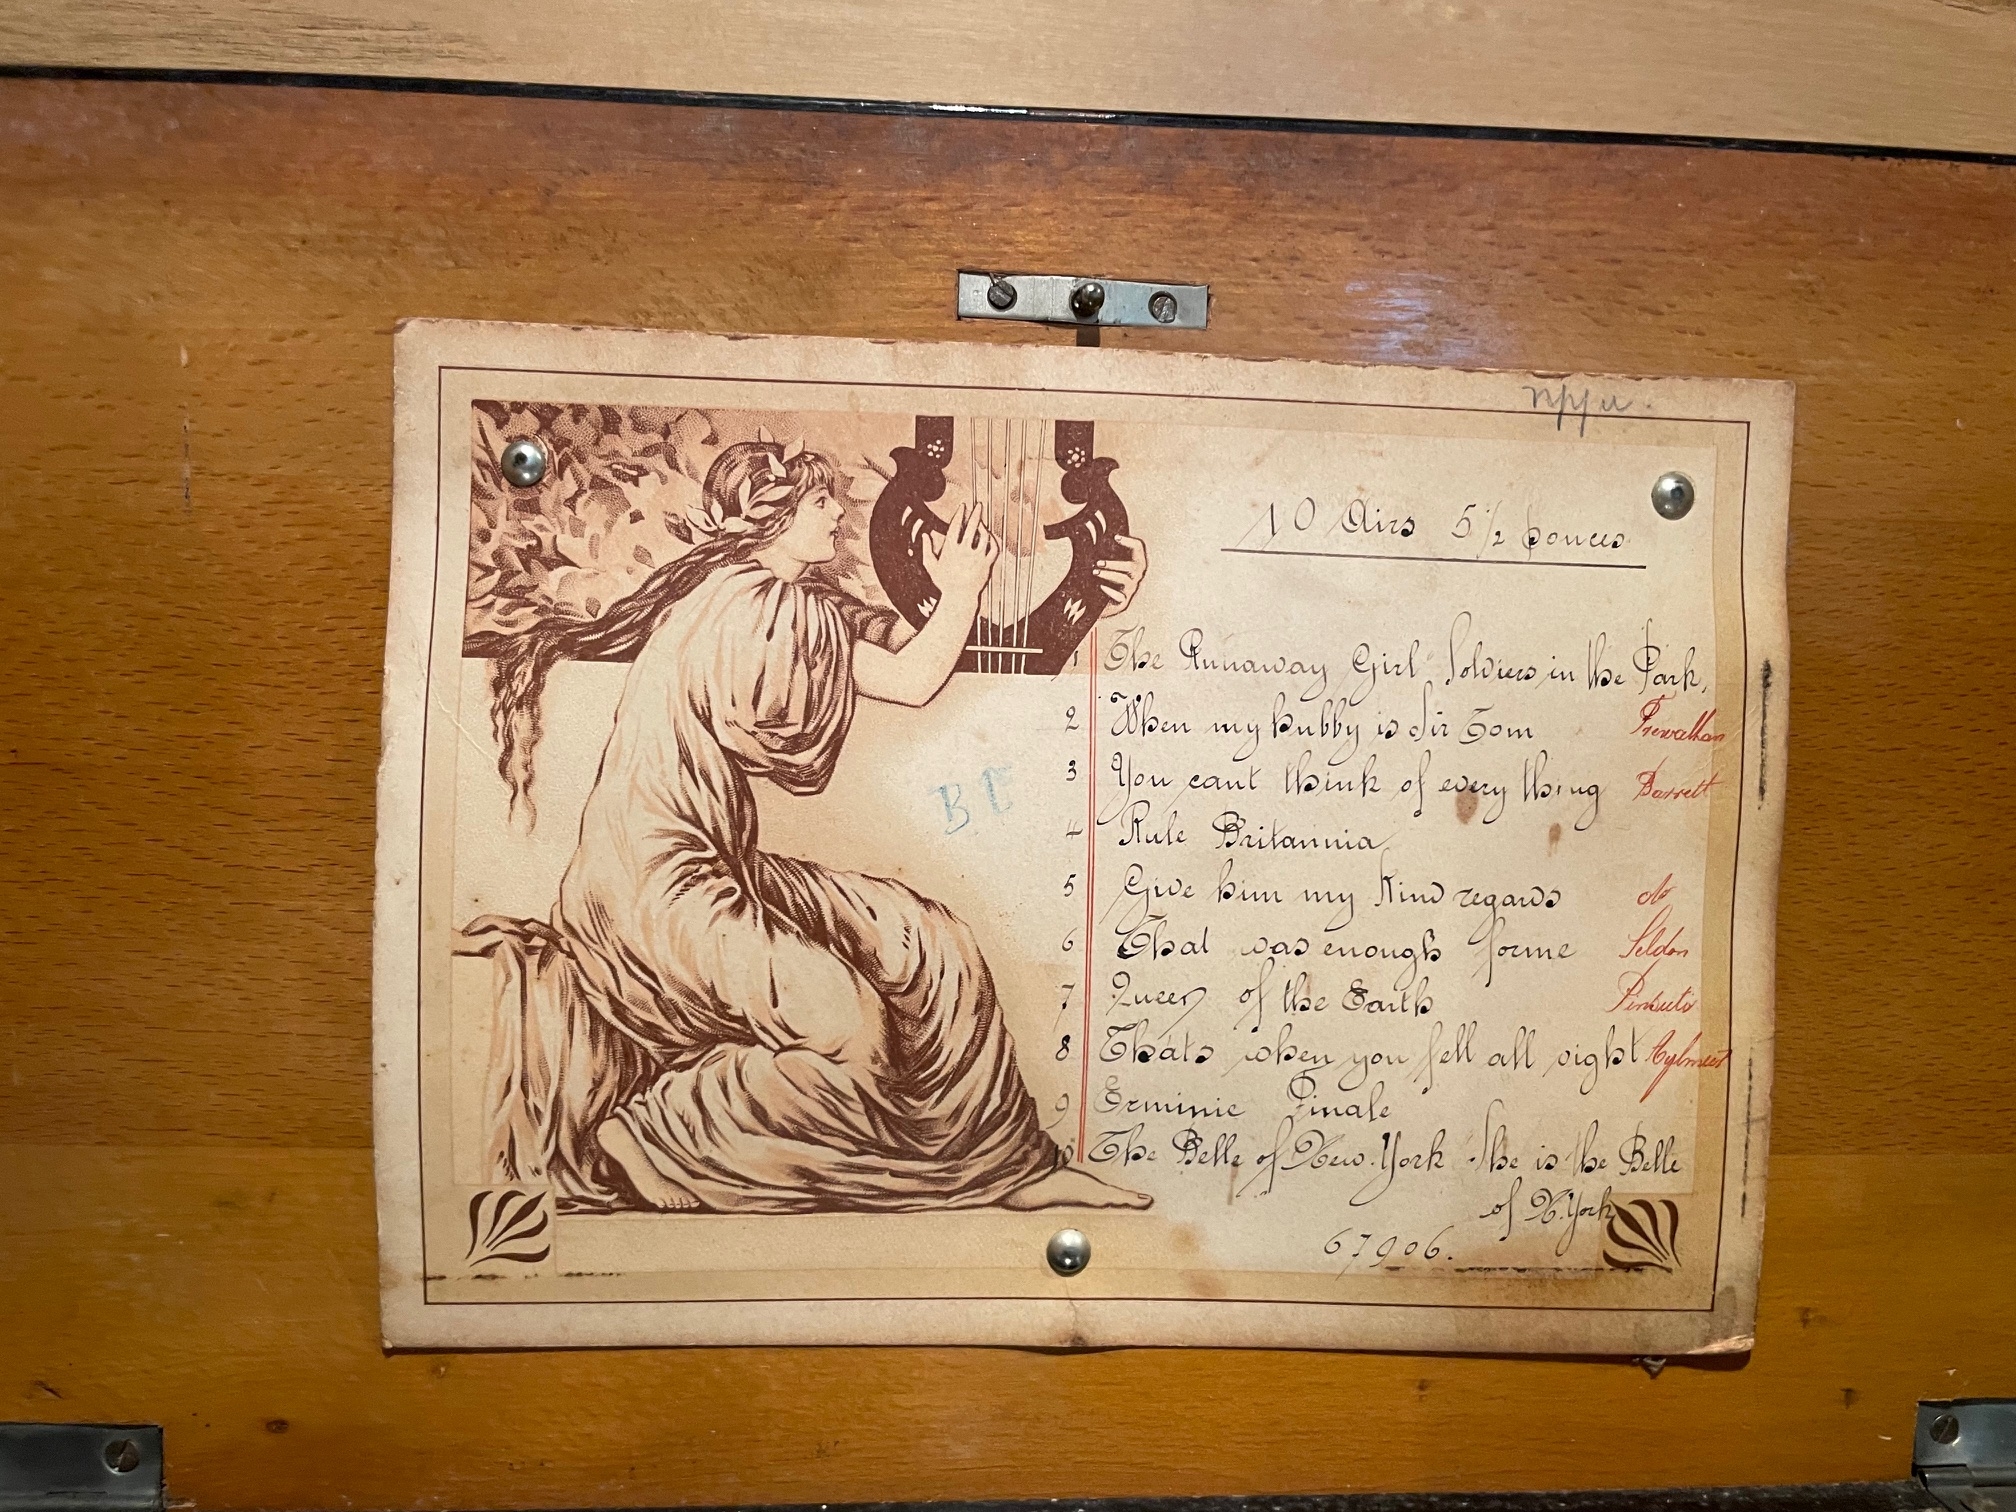 10 Airs 5 1/2 pouces
1 The Runaway Girl Soldiers in the Park,
2 When my hubby is Sir Tom Trevalhan
3 You cant think of every thing Barrett
4 Rule Britannia
5 Give him my Kind regards do
6 That was enough for me Seldon
7 Queen of the Earth Pinsuti
8 Thats when you fell all right
9 Erminie Finale
10 The Belle of New. York She is the Belle
of N. York
67906.
B C